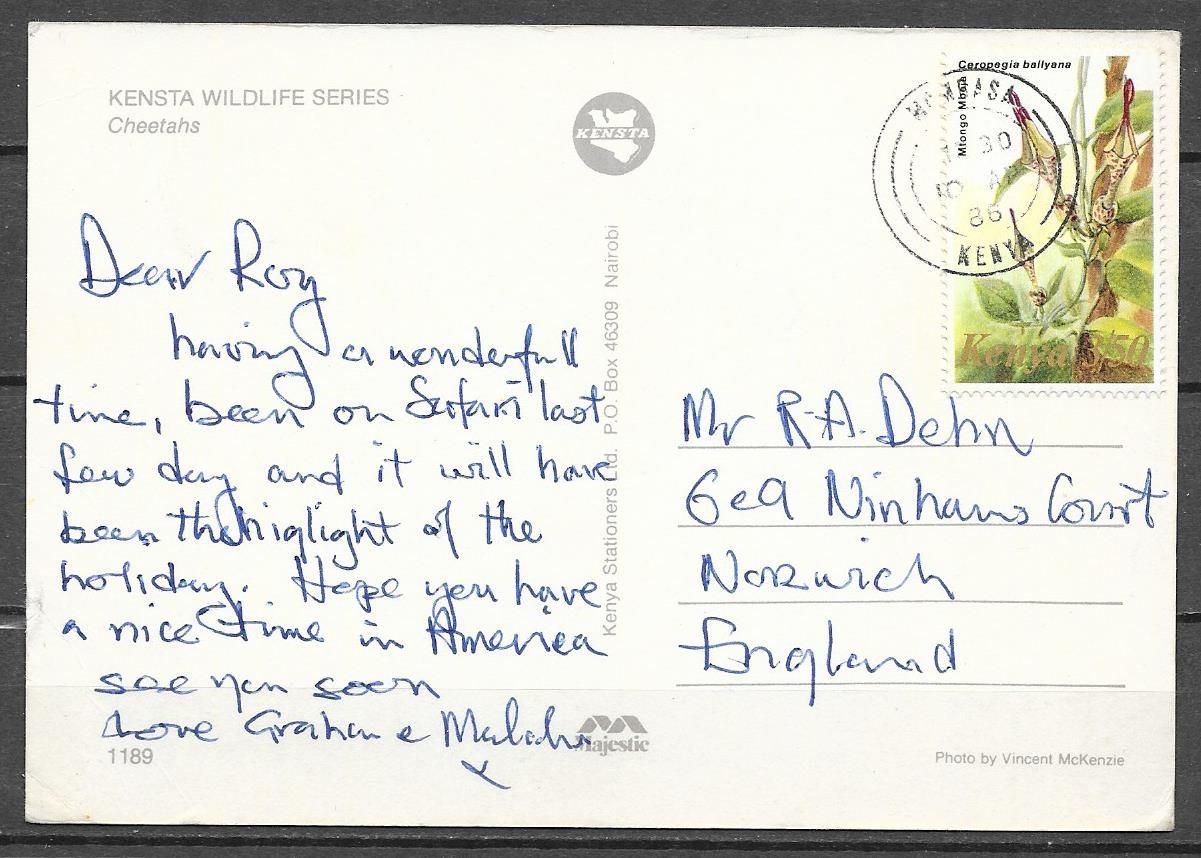 KENSTA WILDLIFE SERIES
Cheetahs
KENSTA
Ceropegia ballyana
Mtongo Mboja
Kenya 3/50
MOMBASA
30
86
KENYA
Dear Roy
having a wonderfull
time, been on Safari last
few day and it will have
been the higlight of the
holiday. Hope you have
a nice time in America
see you soon
Love Graham e
x
1189
Kenya Stationers Ltd. P.O. Box 46309 Nairobi
Majestic
Mr R.A. Dehn
Ninhams Court
Norwich
England
Photo by Vincent McKenzie